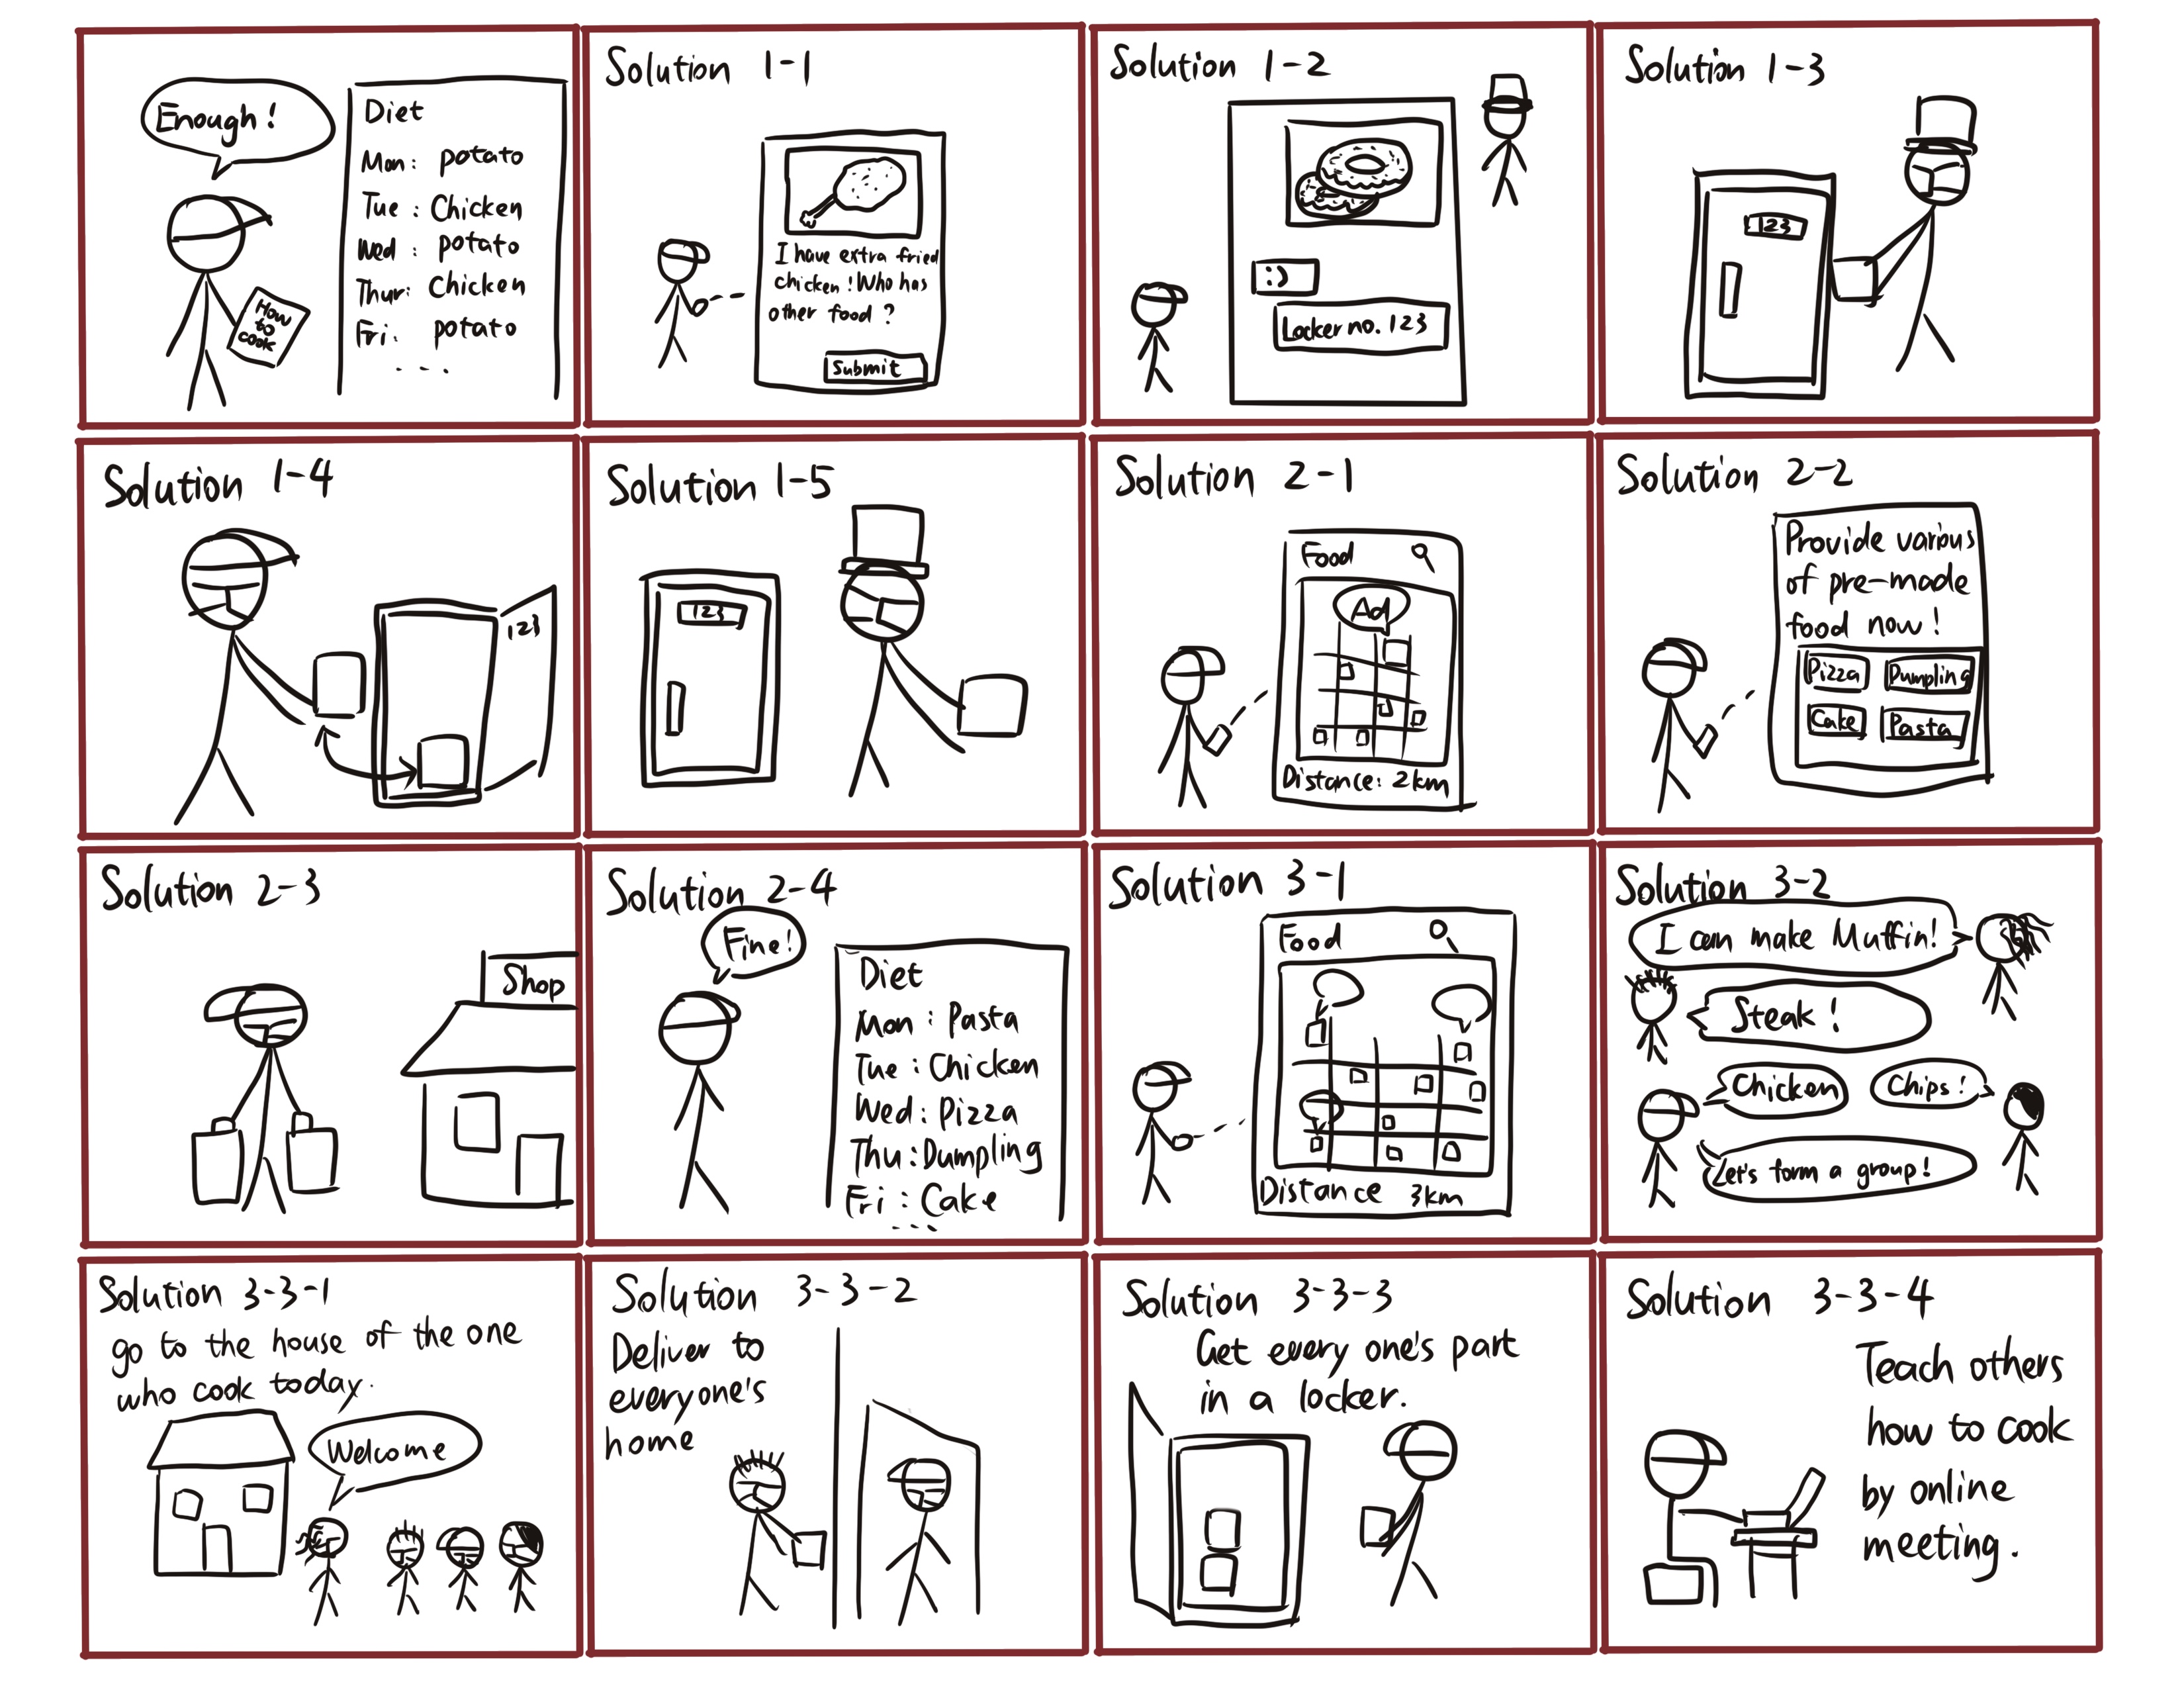 Enough!
Diet
Mon: potato
Tue: Chicken
Wed: potato
Thur: Chicken
Fri: potato
...
How
to
cook
Solution 1-1
I have extra fried
chicken! Who has
other food?
Submit
Solution 1-2
:)
Locker no. 123
Solution 1-3
123
Solution 1-4
123
Solution 1-5
123
Solution 2-1
Food
Ad
Distance: 2km
Solution 2-2
Provide various
of pre-made
food now!
Pizza Dumpling
Cake Pasta
Solution 2-3
Shop
Solution 2-4
Fine!
Diet
Mon: Pasta
Tue: Chicken
Wed: Pizza
Thu: Dumpling
Fri: Cake
...
Solution 3-1
Food
Distance 3km
Solution 3-2
I can make Muffin!
Steak!
Chicken
Chips!
Let's form a group!
Solution 3-3-1
go to the house of the one
who cook today.
Welcome
Solution 3-3-2
Deliver to
everyone's
home
Solution 3-3-3
Get every one's part
in a locker.
Solution 3-3-4
Teach others
how to cook
by online
meeting.